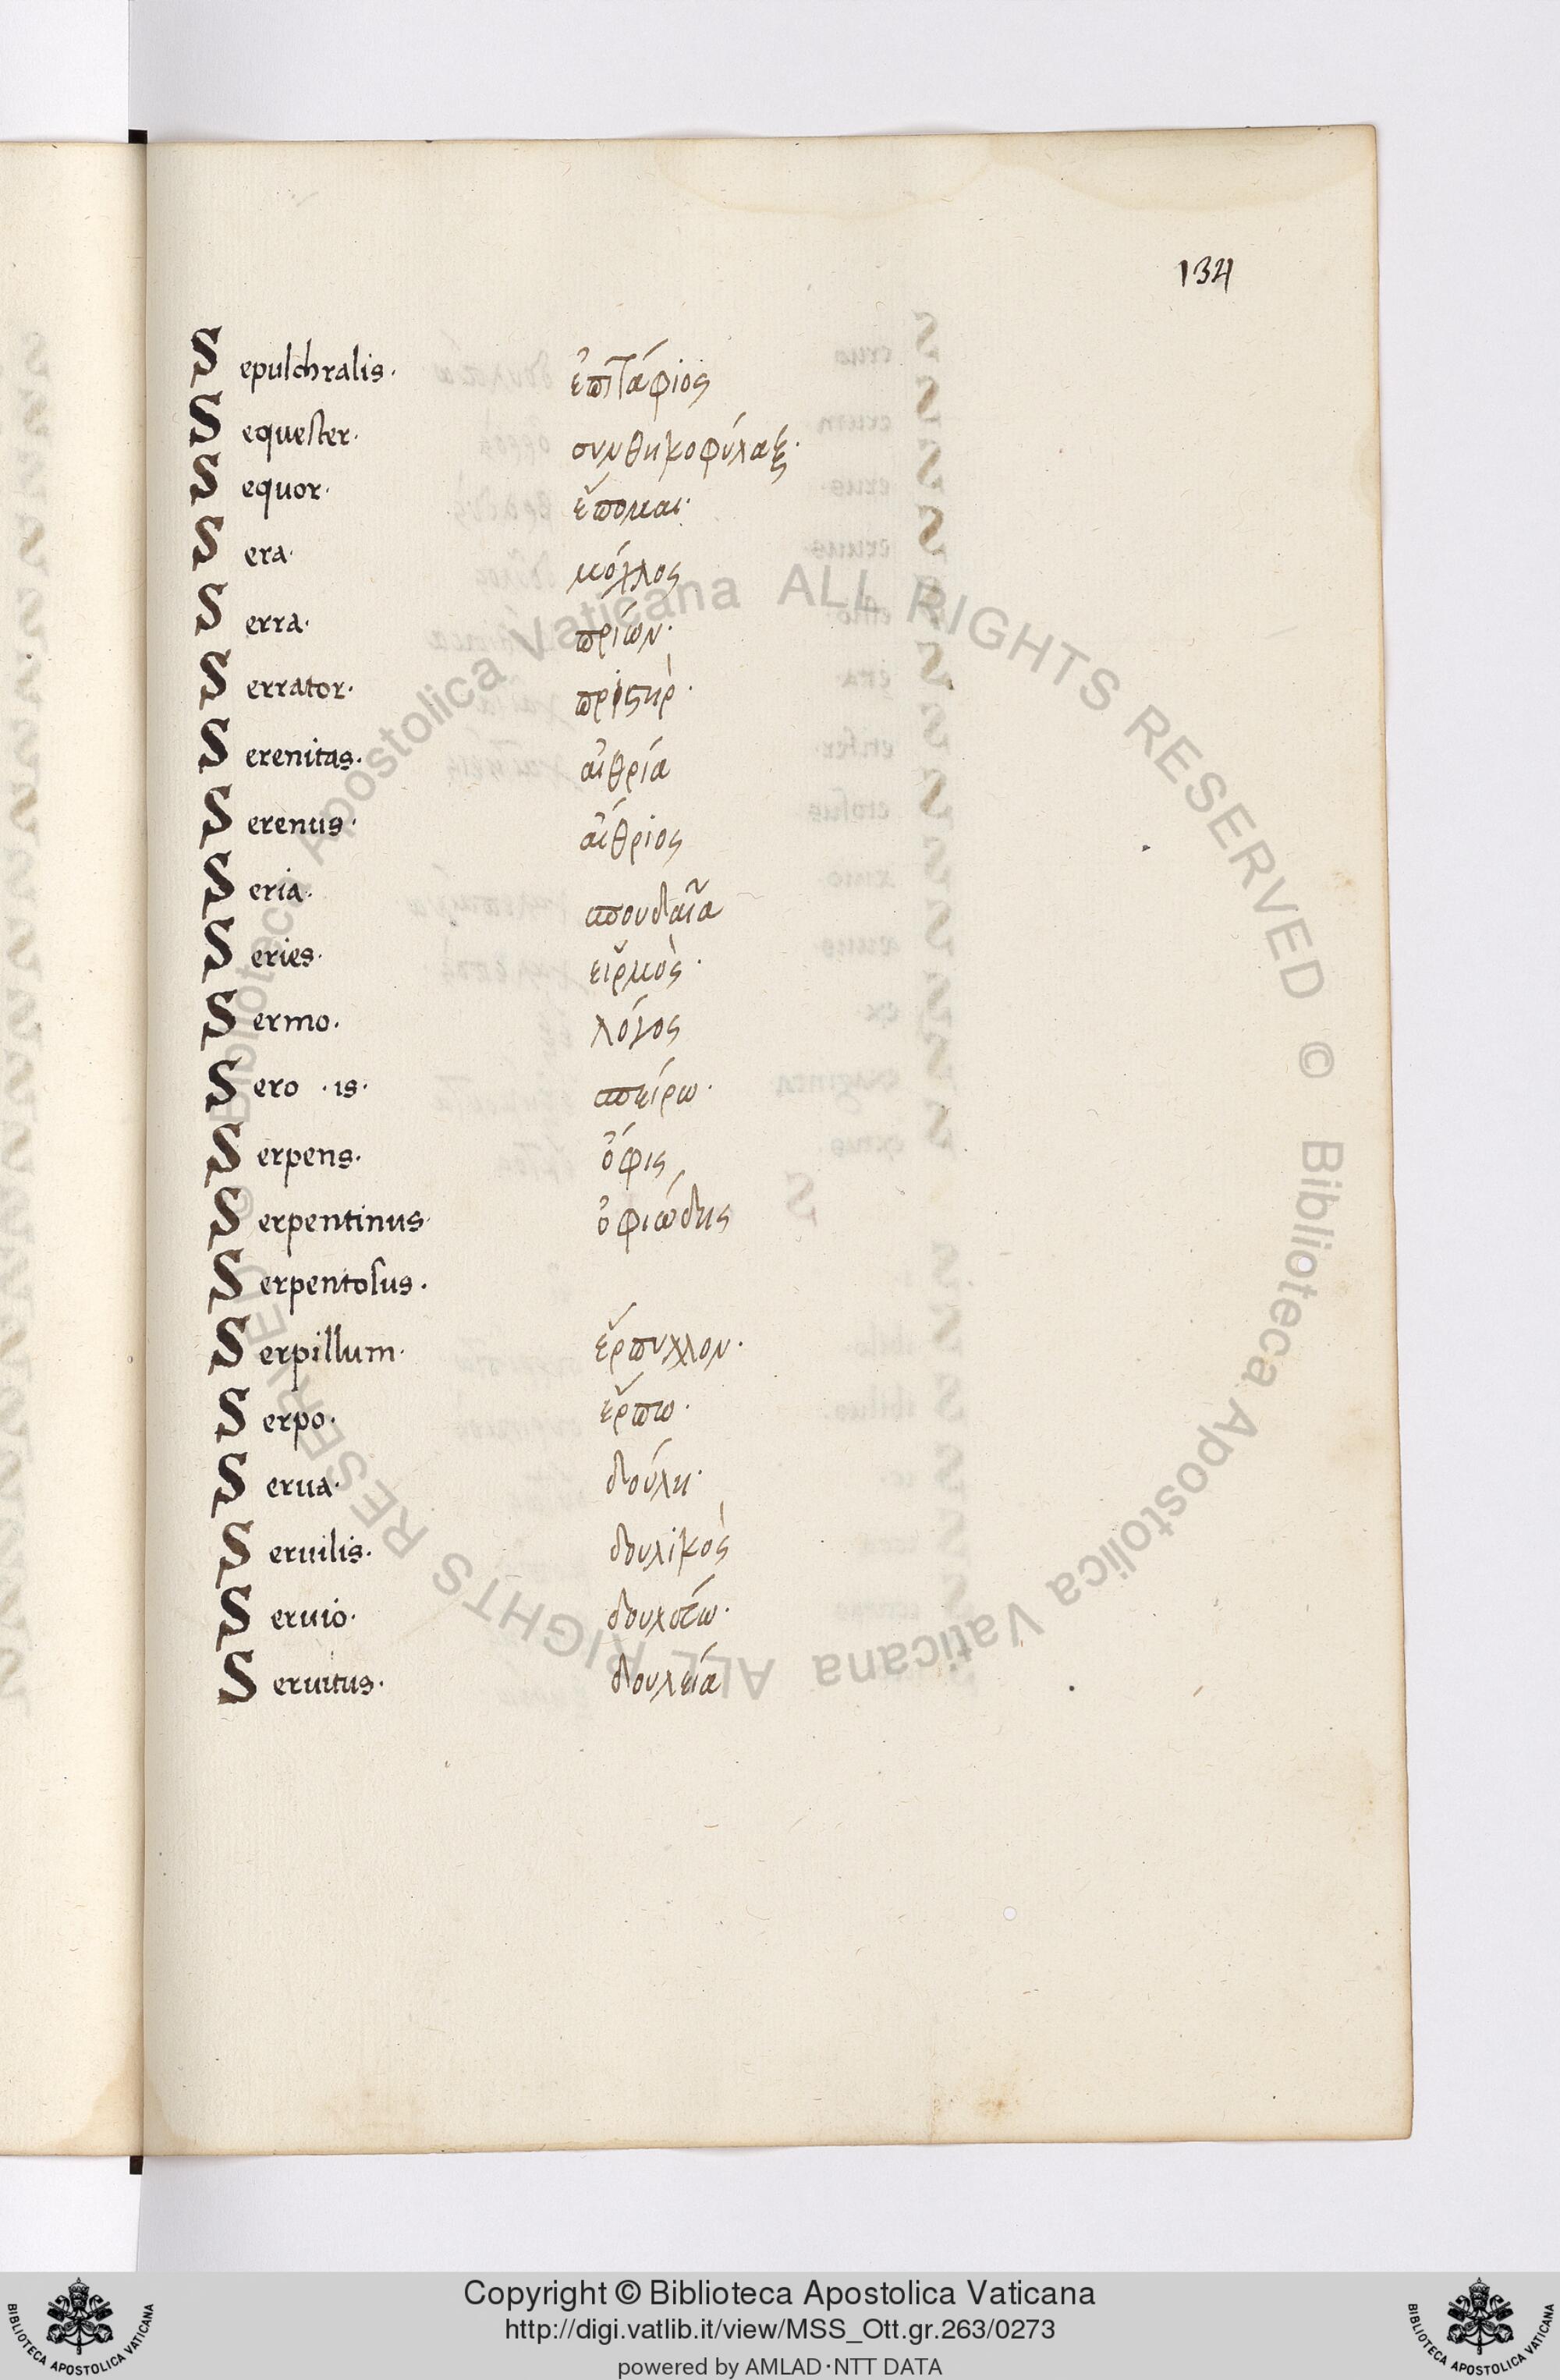 134
Sepulchralis· ἐπιτάφιος
Sequester· συνθηκοφύλαξ·
Sequor· ἕπομαι·
Sera· μόχλος
Serra· πρίων·
Serrator· πριστὴρ·
Serenitas· αἰθρία
Serenus· αἴθριος
Seria· σπουδαῖα
Series· εἱρμὸς·
Sermo· λόγος
Sero ·is· σπείρω·
Serpens· ὄφις
Serpentinus· ὀφιώδης
Serpentosus·
Serpillum· ἕρπυλλον·
Serpo· ἕρπω·
Serua· δούλη·
Seruilis· δουλικὸς
Seruio·
Seruitus· δουλεία
Biblioteca Apostolica Vaticana ALL RIGHTS RESERVED ©
Biblioteca Apostolica Vaticana ALL RIGHTS RESERVED ©
Copyright © Biblioteca Apostolica Vaticana
http://digi.vatlib.it/view/MSS_Ott.gr.263/0273
powered by AMLAD·NTT DATA
BIBLIOTECA APOSTOLICA VATICANA
BIBLIOTECA APOSTOLICA VATICANA